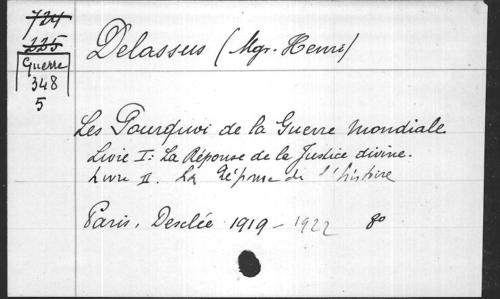 724
225
Guerre
348
5
Delassus (Mgr. Henri)
Les Pourquoi de la Guerre Mondiale
Livre I: La Réponse de la Justice divine.
Livre II. La Réponse de l'histoire
Paris, Desclée 1919-1922 8o